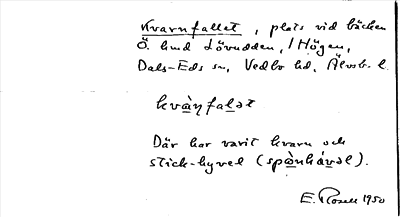 Kvarnfallet, plats vid bäcken
Ö. hmd Lövudden, / Högen,
Dals-Eds sn, Vedbo hd, Älvsb. l.
kvàṇfaḷət
Där har varit kvarn och
stick-hyvel (spònhávəl).
E. Rosell 1950